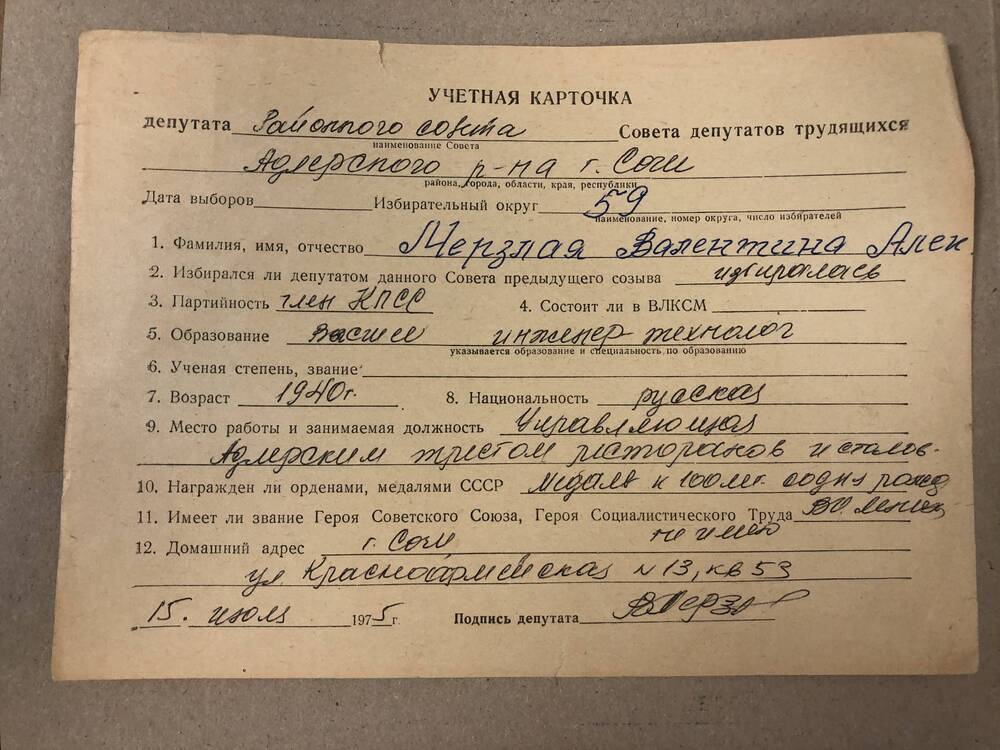 УЧЕТНАЯ КАРТОЧКА
депутата Районного совета Совета депутатов трудящихся
наименование Совета
Адлерского р-на г. Сочи
района, города, области, края, республики
Дата выборов Избирательный округ 59
наименование, номер округа, число избирателей
1. Фамилия, имя, отчество Мерзлая Валентина Алек
2. Избирался ли депутатом данного Совета предыдущего созыва избиралась
3. Партийность член КПСС 4. Состоит ли в ВЛКСМ
5. Образование высшее инженер-технолог
указывается образование и специальность по образованию
6. Ученая степень, звание
7. Возраст 1940г. 8. Национальность русская
9. Место работы и занимаемая должность Управляющая
Адлерским трестом ресторанов и столов.
10. Награжден ли орденами, медалями СССР медаль к 100лет. со дня рожд
11. Имеет ли звание Героя Советского Союза, Героя Социалистического Труда В.И. Ленин
не имею
12. Домашний адрес г. Сочи
ул. Красноармейская № 13, кв 53
15. июля 1975г. Подпись депутата ВМерзл